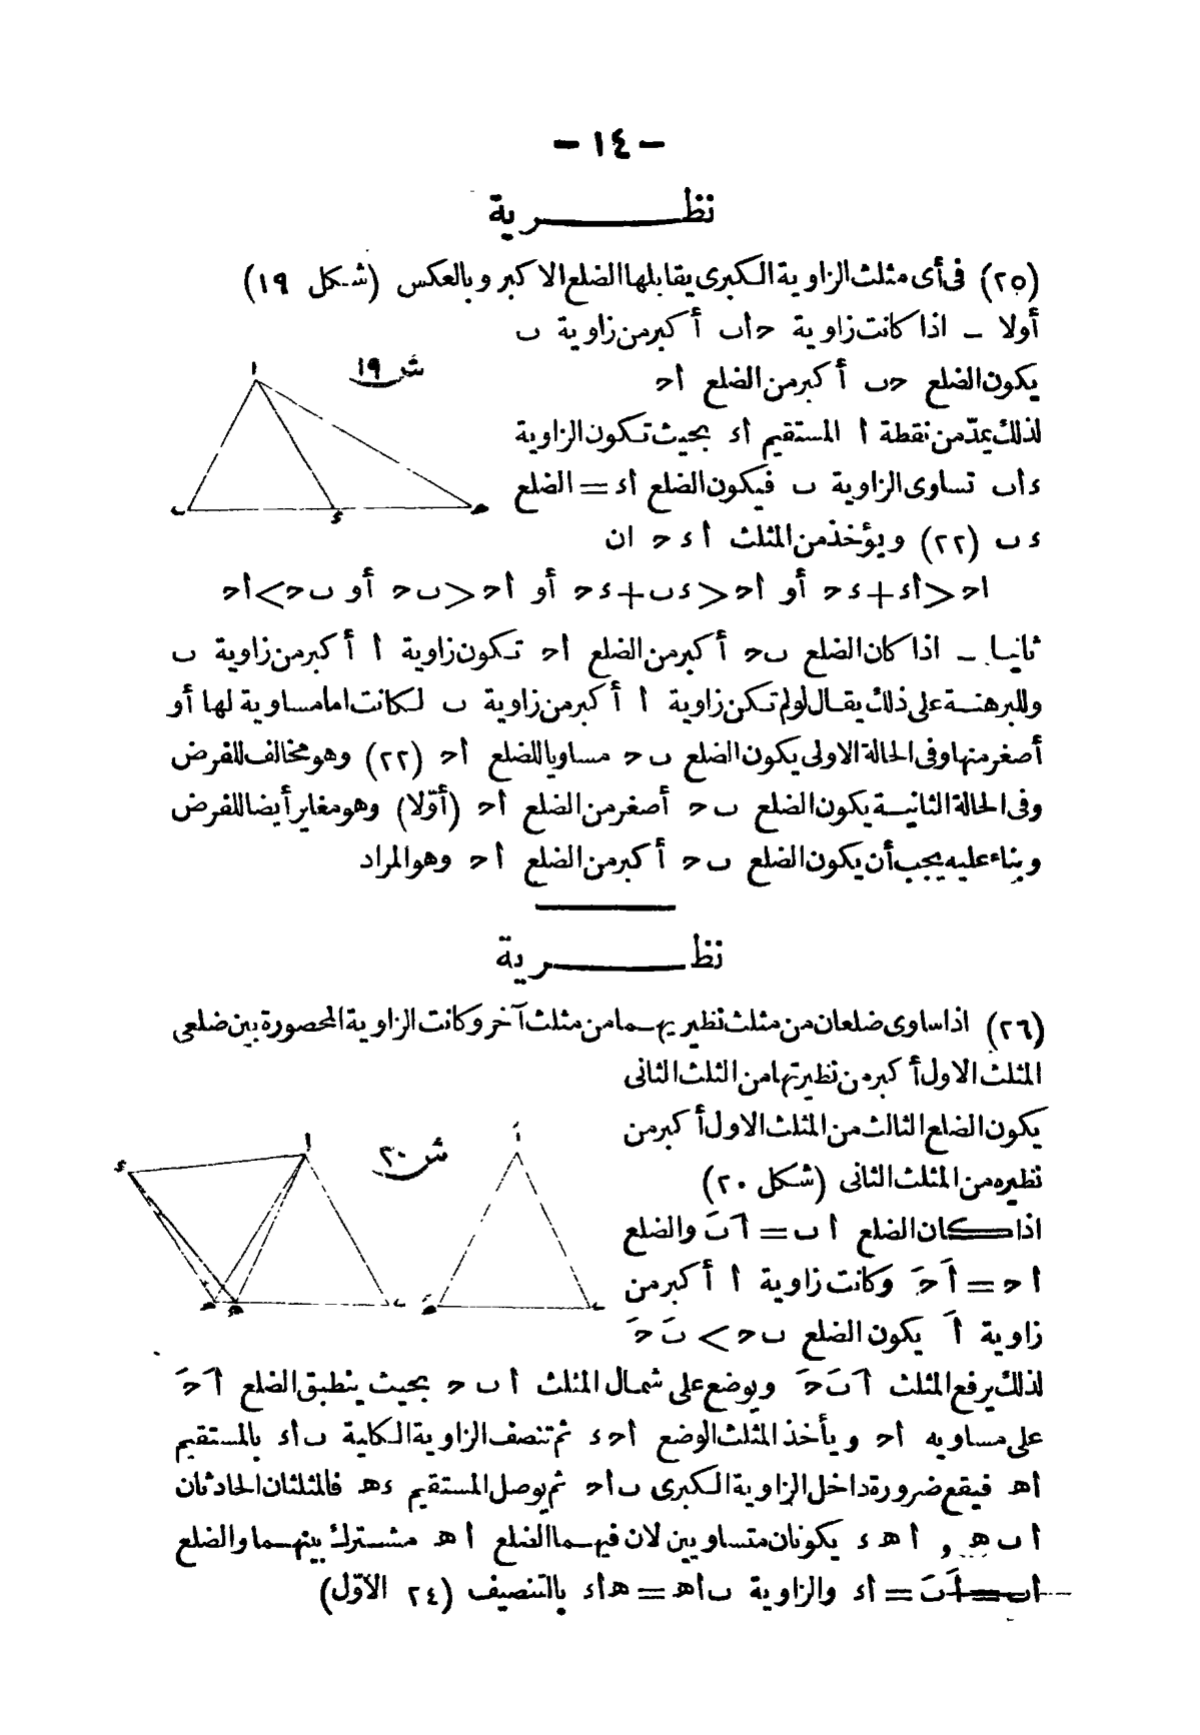 - ١٤ -
نظـــــرية
(٢٥) فى أى مثلث الزاوية الكبرى يقابلها الضلع الاكبر وبالعكس (شكل ١٩)
أولا - اذا كانت زاوية حأب أكبر من زاوية ب
يكون الضلع حب أكبر من الضلع أح
ش ١٩
ا
ب
ء
ح
لذلك يمدّ من نقطة أ المستقيم أء بحيث تكون الزاوية
ءأب تساوى الزاوية ب فيكون الضلع أء = الضلع
ءب (٢٢) ويؤخذ من المثلث أءح ان
اح<أء+ءح أو أح<ءب+ءح أو أح<بح أو بح>أح
ثانيا - اذا كان الضلع بح أكبر من الضلع أح تكون زاوية أ أكبر من زاوية ب
وللبرهنة على ذلك يقال لو لم تكن زاوية أ أكبر من زاوية ب لكانت اما مساوية لها أو
أصغر منها وفى الحالة الاولى يكون الضلع بح مساويا للضلع أح (٢٢) وهو مخالف للفرض
وفى الحالة الثانية يكون الضلع بح أصغر من الضلع أح (أوّلا) وهو مغاير أيضا للفرض
وبناء عليه يجب أن يكون الضلع بح أكبر من الضلع أح وهو المراد
نظـــــرية
(٢٦) اذا ساوى ضلعان من مثلث نظيريهما من مثلث آخر وكانت الزاوية المحصورة بين ضلعى
المثلث الاول أكبر من نظيرتها من الثلث الثانى
يكون الضلع الثالث من المثلث الاول أكبر من
نظيره من المثلث الثانى (شكل ٢٠)
ش ٢٠
اذا كان الضلع أب = أَبَ والضلع
أح = أَحَ وكانت زاوية أ أكبر من
زاوية أَ يكون الضلع بح > بَحَ
لذلك يرفع المثلث أَبَحَ ويوضع على شمال المثلث أبح بحيث ينطبق الضلع أَحَ
على مساويه أح ويأخذ المثلث الوضع أحء ثم تنصف الزاوية الكلية بأء بالمستقيم
أهـ فيقع ضرورة داخل الزاوية الكبرى بأح ثم يوصل المستقيم ءهـ فالمثلثان الحادثان
أبهـ و أهـء يكونان متساويين لان فيهما الضلع أهـ مشترك بينهما والضلع
أب = أَبَ = أء والزاوية بأهـ = هأء بالتنصيف (٢٤ الأوّل)